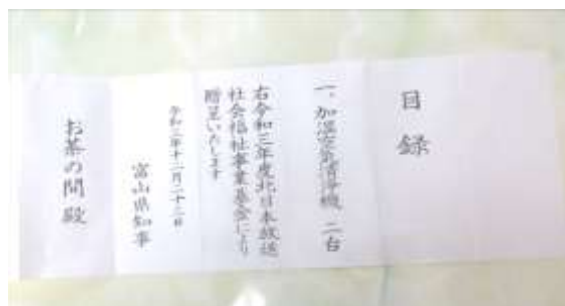 目録
一、加湿空気清浄機 二台
右令和二年度北日本放送
社会福祉事業基金により
贈呈いたします
令和二年十二月二十二日
富山県知事
お茶の間殿